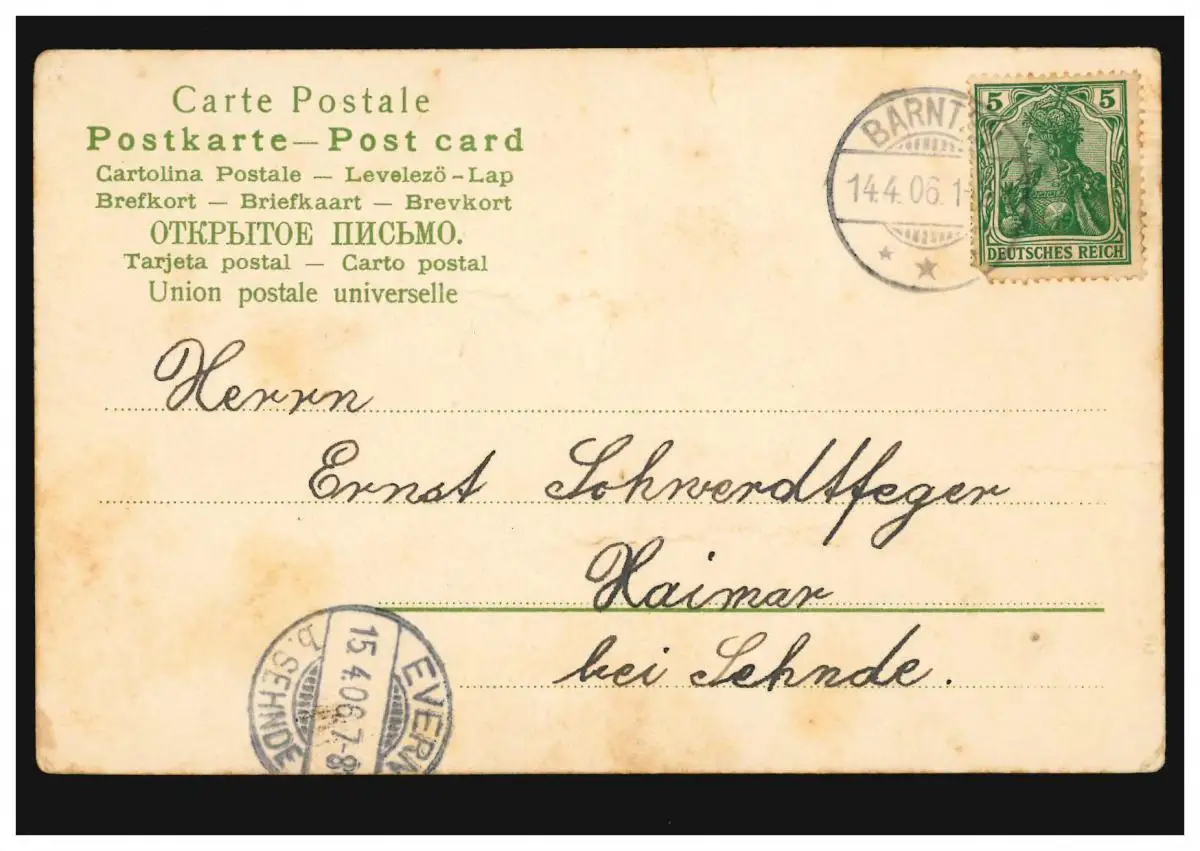 Carte Postale
Postkarte — Post card
Cartolina Postale — Levelezö-Lap
Brefkort — Briefkaart — Brevkort
ОТКРЫТОЕ ПИСЬМО.
Tarjeta postal — Carto postal
Union postale universelle
5 5
DEUTSCHES REICH
14.4.06.1-
Herrn
Ernst Schwerdtfeger
Haimar
bei Sehnde.
15.4.06.7-8
b. SEHNDE